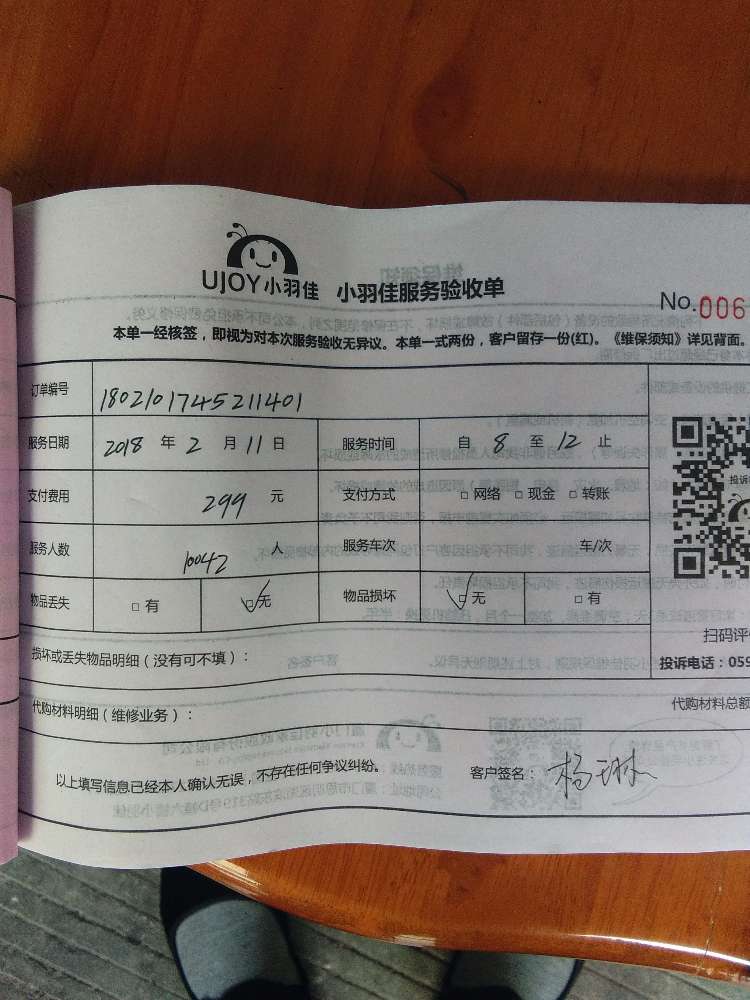 UJOY小羽佳 小羽佳服务验收单
No.006
本单一经核签，即视为对本次服务验收无异议。本单一式两份，客户留存一份(红)。《维保须知》详见背面。
订单编号 1802101745211401
服务日期 2018 年 2 月 11 日 服务时间 自 8 至 12 止
支付费用 299 元 支付方式 □ 网络 □ 现金 □ 转账
服务人数 10042 人 服务车次 车/次
物品丢失 □ 有 □ 无 物品损坏 □ 无 □ 有
投诉
扫码评
损坏或丢失物品明细（没有可不填）：
投诉电话：059
代购材料明细（维修业务）：
代购材料总额
以上填写信息已经本人确认无误，不存在任何争议纠纷。 客户签名：杨琳